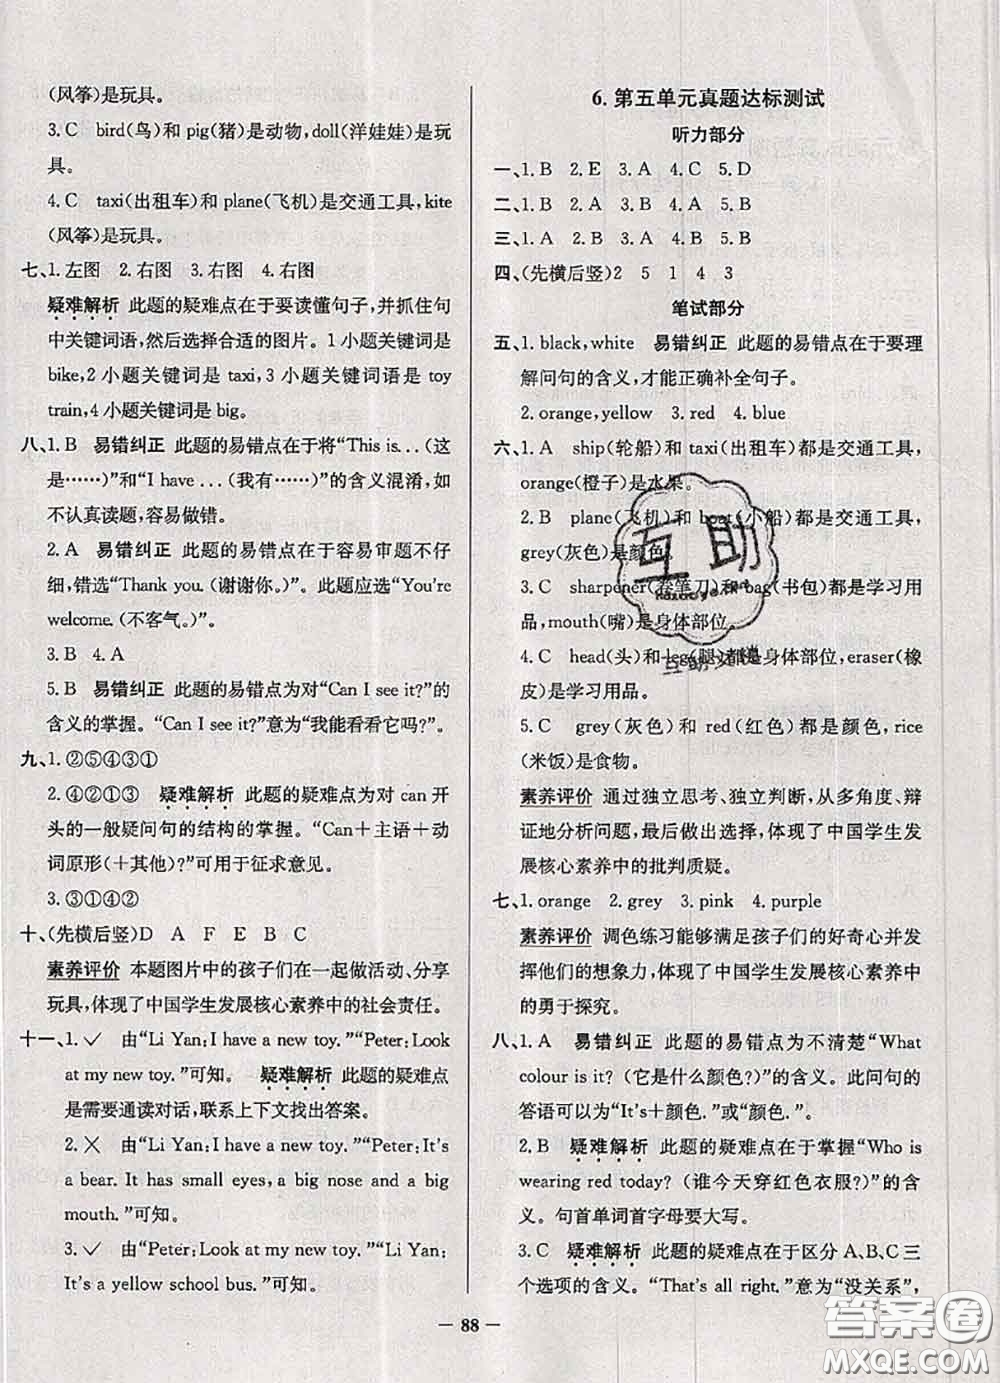 (风筝)是玩具。
3. C bird(鸟)和 pig(猪)是动物, doll(洋娃娃)是玩
具。
4. C taxi(出租车)和 plane(飞机)是交通工具, kite
(风筝)是玩具。
七、1. 左图 2. 右图 3. 右图 4. 右图
疑难解析 此题的疑难点在于要读懂句子,并抓住句
中关键词语,然后选择合适的图片。1 小题关键词是
bike,2 小题关键词是 taxi,3 小题关键词语是 toy
train,4 小题关键词是 big。
八、1. B 易错纠正 此题的易错点在于将“This is...(这
是……)”和“I have ...(我有……)”的含义混淆,如
不认真读题,容易做错。
2. A 易错纠正 此题的易错点在于容易审题不仔
细,错选“Thank you. (谢谢你。)”。此题应选“You're
welcome. (不客气。)”。
3. B 4. A
5. B 易错纠正 此题的易错点为对“Can I see it?”的
含义的掌握。“Can I see it?”意为“我能看看它吗?”。
九、1. ②⑤④③①
2. ④②①③ 疑难解析 此题的疑难点为对 can 开
头的一般疑问句的结构的掌握。“Can+主语+动
词原形(+其他)?”可用于征求意见。
3. ③①④②
十、(先横后竖)D A F E B C
素养评价 本题图片中的孩子们在一起做活动、分享
玩具,体现了中国学生发展核心素养中的社会责任。
十一、1. ✓ 由“Li Yan: I have a new toy. ”“Peter: Look
at my new toy. ”可知。 疑难解析 此题的疑难点
是需要通读对话,联系上下文找出答案。
2. ✕ 由“Li Yan: I have a new toy. ”“Peter: It's
a bear. It has small eyes, a big nose and a big
mouth. ”可知。
3. ✓ 由“Peter: Look at my new toy. ”“Li Yan:
It's a yellow school bus. ”可知。
6. 第五单元真题达标测试
听力部分
一、1. B 2. E 3. A 4. C 5. D
二、1. B 2. A 3. B 4. A 5. B
三、1. A 2. B 3. A 4. B 5. B
四、(先横后竖)2 5 1 4 3
笔试部分
五、1. black, white 易错纠正 此题的易错点在于要理
解问句的含义,才能正确补全句子。
2. orange, yellow 3. red 4. blue
六、1. A ship(轮船)和 taxi(出租车)都是交通工具,
orange(橙子)是水果。
2. B plane(飞机)和 boat(小船)都是交通工具,
grey(灰色)是颜色。
3. C sharpener(卷笔刀)和 bag(书包)都是学习用
品, mouth(嘴)是身体部位。
4. C head(头)和 leg(腿)都是身体部位, eraser(橡
皮)是学习用品。
5. C grey(灰色)和 red(红色)都是颜色, rice
(米饭)是食物。
素养评价 通过独立思考、独立判断,从多角度、辩
证地分析问题,最后做出选择,体现了中国学生发
展核心素养中的批判质疑。
七、1. orange 2. grey 3. pink 4. purple
素养评价 调色练习能够满足孩子们的好奇心并发
挥他们的想象力,体现了中国学生发展核心素养中
的勇于探究。
八、1. A 易错纠正 此题的易错点为不清楚“What
colour is it? (它是什么颜色?)”的含义。此问句的
答语可以为“It's+颜色. ”或“颜色. ”。
2. B 疑难解析 此题的疑难点在于掌握“Who is
wearing red today? (谁今天穿红色衣服?)”的含
义。句首单词首字母要大写。
3. C 疑难解析 此题的疑难点在于区分 A、B、C 三
个选项的含义。“That's all right. ”意为“没关系”,
— 88 —
互助
答案圈
MXQE.COM